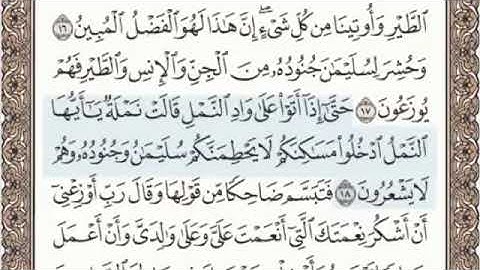 ٱلطَّيْرِ وَأُوتِينَا مِن كُلِّ شَيْءٍ ۖ إِنَّ هَٰذَا لَهُوَ ٱلْفَضْلُ ٱلْمُبِينُ ١٦
وَحُشِرَ لِسُلَيْمَٰنَ جُنُودُهُۥ مِنَ ٱلْجِنِّ وَٱلْإِنسِ وَٱلطَّيْرِ فَهُمْ
يُوزَعُونَ ١٧ حَتَّىٰٓ إِذَآ أَتَوْا۟ عَلَىٰ وَادِ ٱلنَّمْلِ قَالَتْ نَمْلَةٌ يَٰٓأَيُّهَا
ٱلنَّمْلُ ٱدْخُلُوا۟ مَسَٰكِنَكُمْ لَا يَحْطِمَنَّكُمْ سُلَيْمَٰنُ وَجُنُودُهُۥ وَهُمْ
لَا يَشْعُرُونَ ١٨ فَتَبَسَّمَ ضَاحِكًا مِّن قَوْلِهَا وَقَالَ رَبِّ أَوْزِعْنِىٓ
أَنْ أَشْكُرَ نِعْمَتَكَ ٱلَّتِىٓ أَنْعَمْتَ عَلَىَّ وَعَلَىٰ وَٰلِدَىَّ وَأَنْ أَعْمَلَ